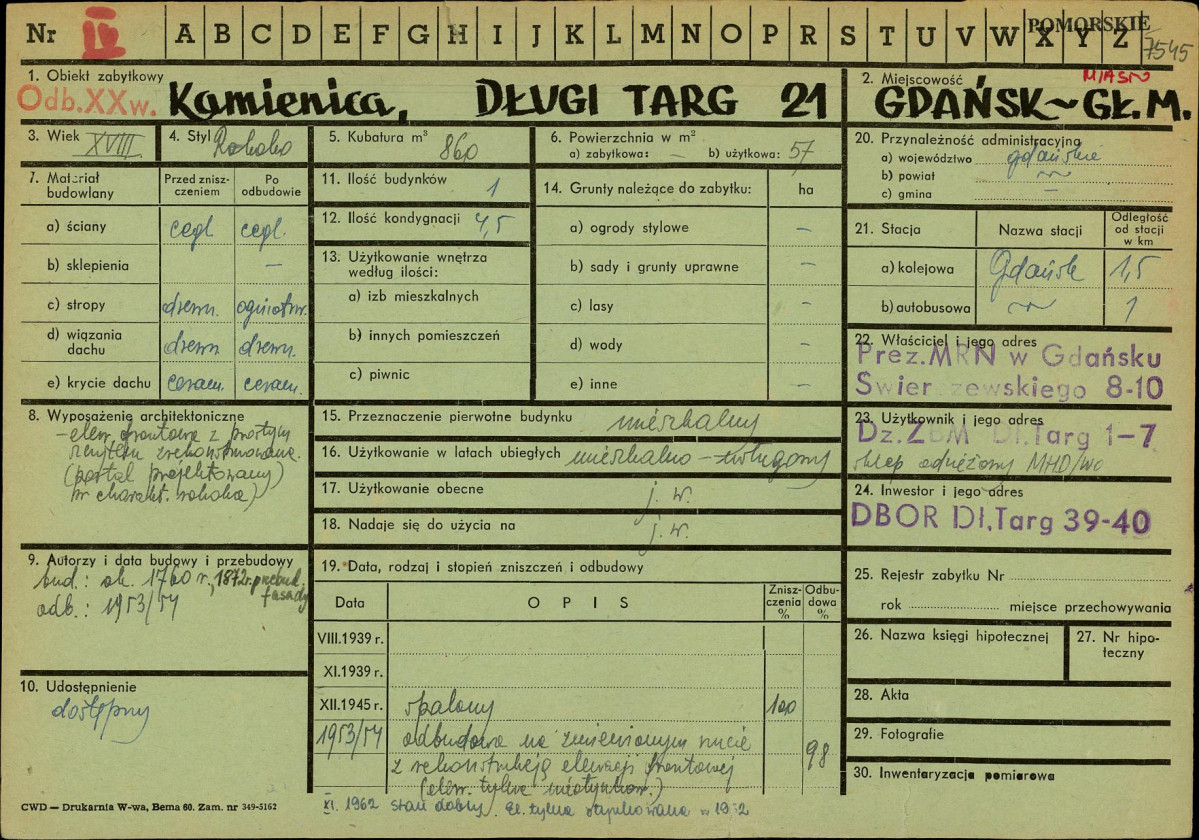 Nr IV A B C D E F G H I J K L M N O P R S T U V W X Y Z
POMORSKIE
7545
1. Obiekt zabytkowy
Odb. XX w. Kamienica, DŁUGI TARG 21
2. Miejscowość MIASTO
GDAŃSK~GŁ.M.
3. Wiek XVIII
4. Styl Rokoko
5. Kubatura m³ 860
6. Powierzchnia w m²
a) zabytkowa: – b) użytkowa: 57
7. Materiał budowlany
Przed zniszczeniem
Po odbudowie
a) ściany cegl. cegl.
b) sklepienia –
c) stropy drewn. ogniotrw.
d) wiązania dachu drewn. drewn.
e) krycie dachu ceram. ceram.
8. Wyposażenie architektoniczne
– elew. frontowa z prostym
zrekonstruowana.
(portal projektowany)
w charakt. rokoka)
9. Autorzy i data budowy i przebudowy
bud.: ok. 1760 r., 1872 r. przebud.
fasady
odb.: 1953/54
10. Udostępnienie
dostępny
11. Ilość budynków 1
12. Ilość kondygnacji 4,5
13. Użytkowanie wnętrza
według ilości:
a) izb mieszkalnych
b) innych pomieszczeń
c) piwnic
14. Grunty należące do zabytku: ha
a) ogrody stylowe –
b) sady i grunty uprawne –
c) lasy –
d) wody –
e) inne –
15. Przeznaczenie pierwotne budynku mieszkalny
16. Użytkowanie w latach ubiegłych mieszkalno – usługowy
17. Użytkowanie obecne j. w.
18. Nadaje się do użycia na j. w.
19. Data, rodzaj i stopień zniszczeń i odbudowy
Data OPIS Zniszczenia % Odbudowa %
VIII.1939 r.
XI.1939 r.
XII.1945 r. spalony 100
1953/54 odbudowa na zmienionym rzucie 98
z rekonstrukcją elewacji frontowej
(elew. tylna nieotynkow.)
XI. 1962 stan dobry. El. tylna otynkowana w 1962
20. Przynależność administracyjna
a) województwo gdańskie
b) powiat
c) gmina –
21. Stacja
Nazwa stacji
Odległość od stacji w km
a) kolejowa Gdańsk 1,5
b) autobusowa 1
22. Właściciel i jego adres
Prez.MRN w Gdańsku
Swierczewskiego 8-10
23. Użytkownik i jego adres
Dz.ZBM Dł.Targ 1-7
sklep odzieżowy MHD
24. Inwestor i jego adres
DBOR Dł.Targ 39-40
25. Rejestr zabytku Nr
rok miejsce przechowywania
26. Nazwa księgi hipotecznej
27. Nr hipoteczny
28. Akta
29. Fotografie
30. Inwentaryzacja pomiarowa
CWD — Drukarnia W-wa, Bema 60. Zam. nr 349-5162